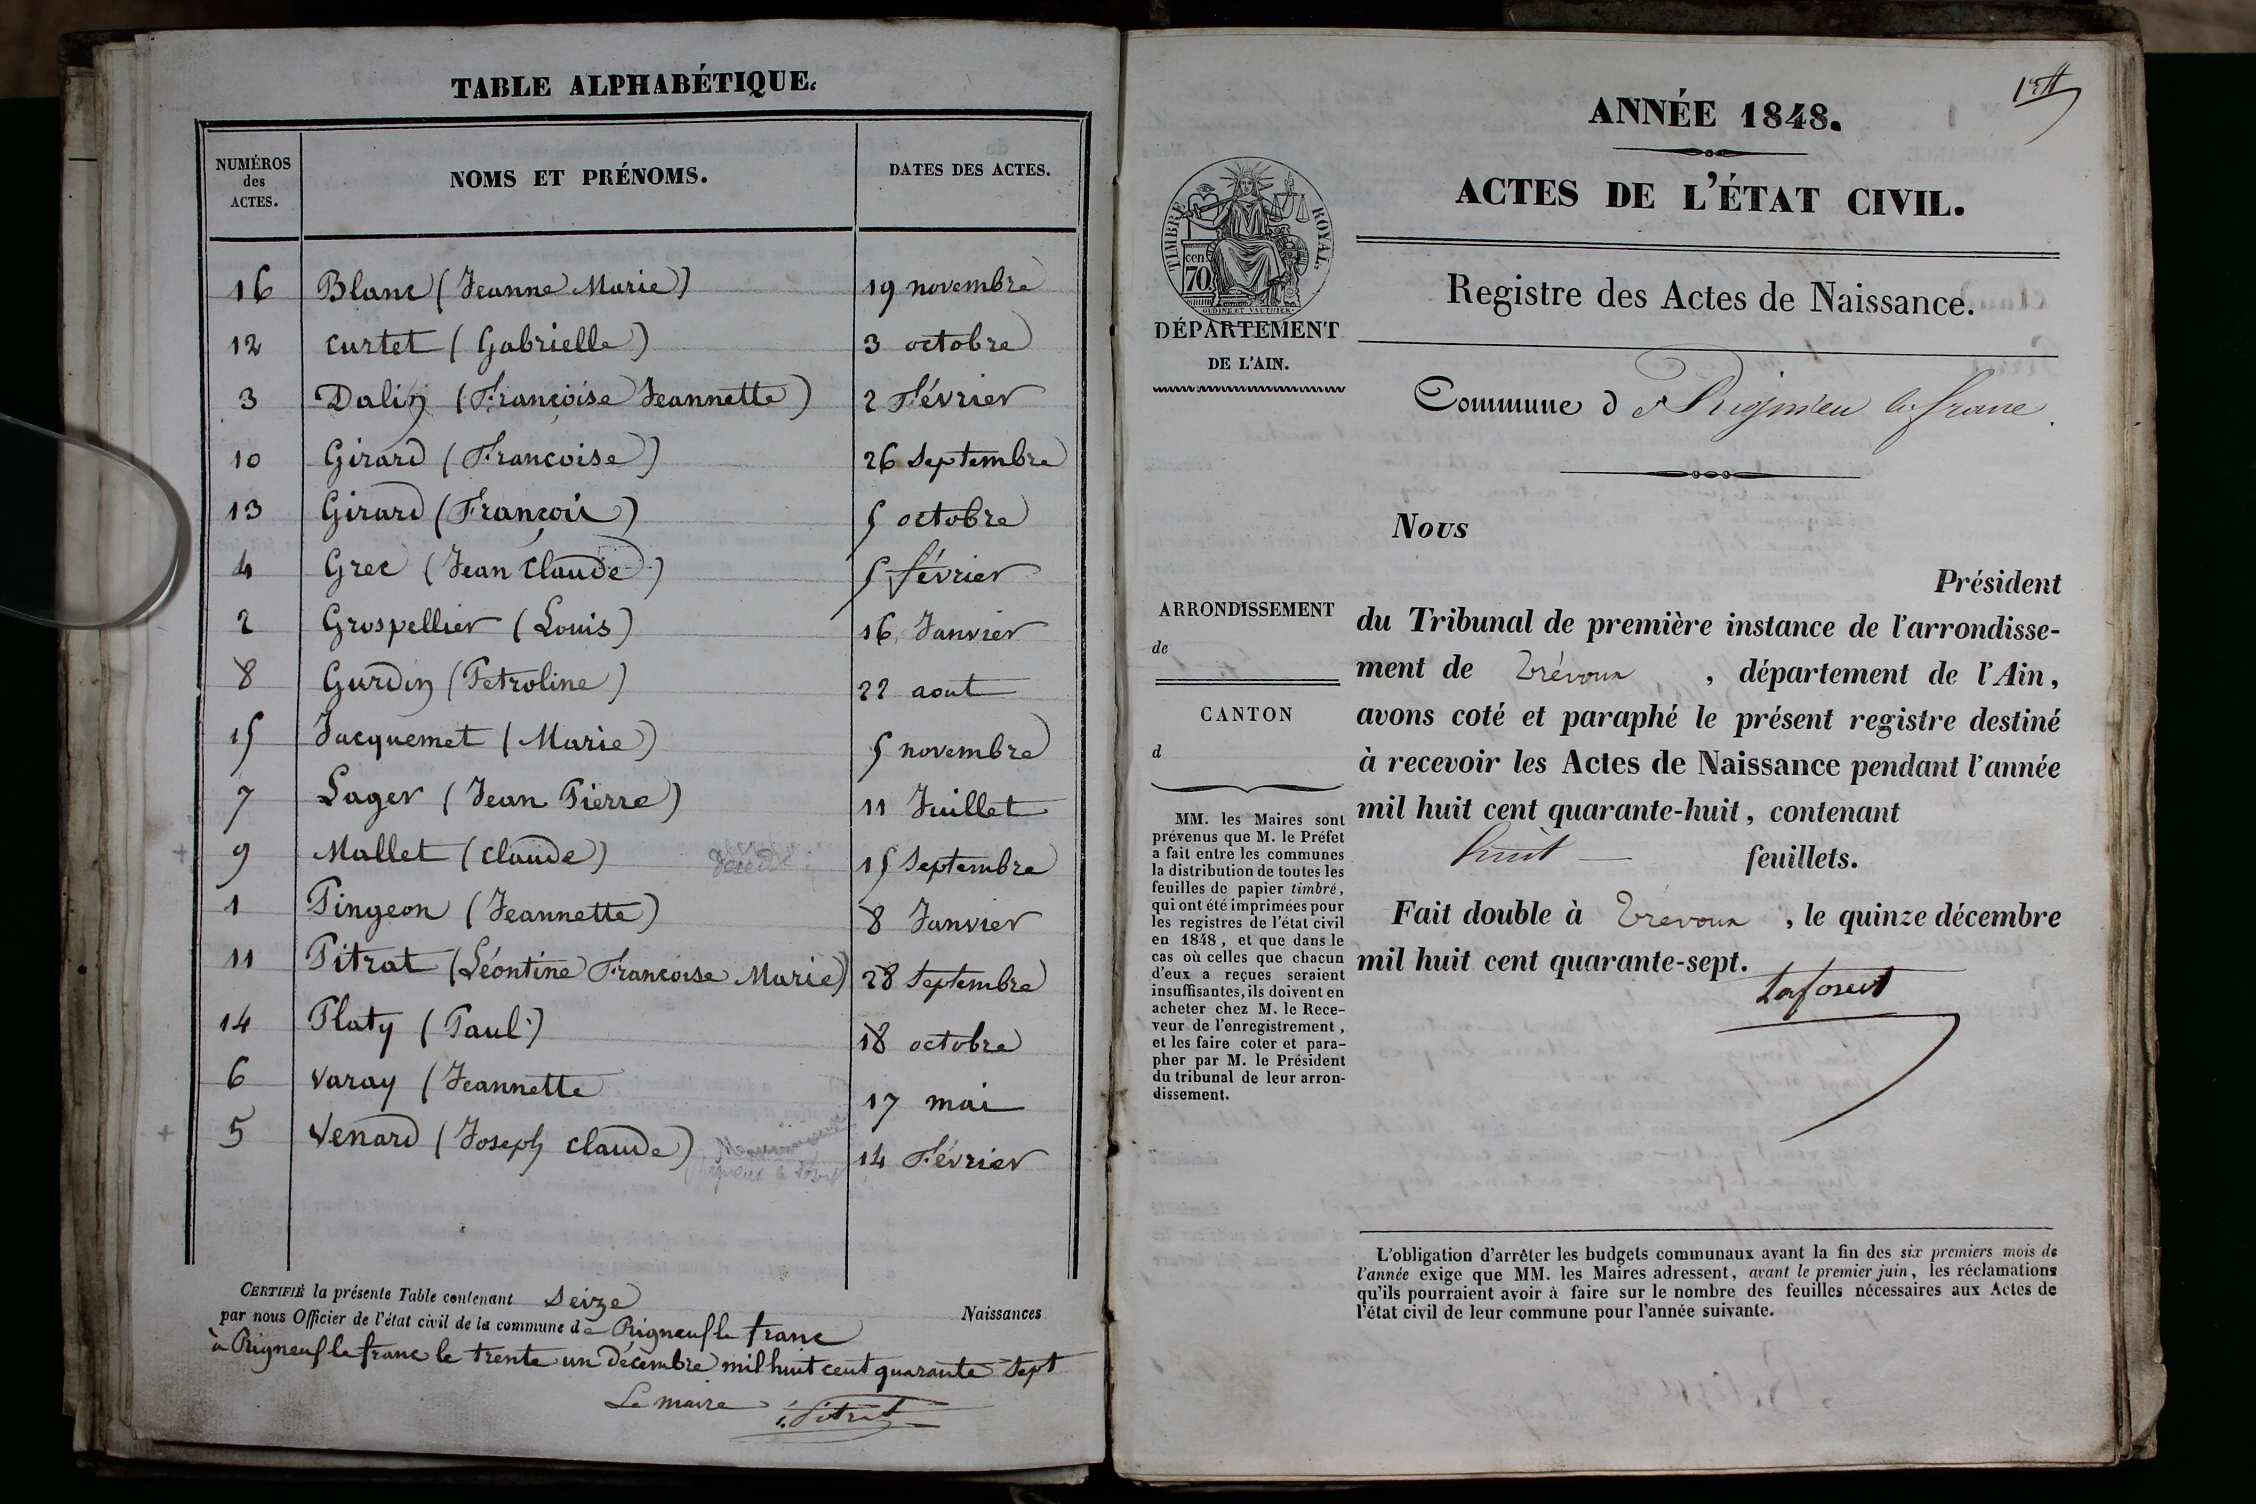 TABLE ALPHABÉTIQUE.
NUMÉROS
des
ACTES.
NOMS ET PRÉNOMS.
DATES DES ACTES.
16 Blanc (Jeanne Marie) 19 novembre
12 Curtet (Gabrielle) 3 octobre
3 Dalin (Françoise Jeannette) 2 Février
10 Girard (Françoise) 26 Septembre
13 Girard (François) 5 octobre
4 Grec (Jean Claude) 5 février
2 Grospellier (Louis) 16 Janvier
8 Gurdin (Petroline) 22 aout
15 Jacquemet (Marie) 5 novembre
7 Lager (Jean Pierre) 11 Juillet
9 Mallet (Claude) 15 Septembre
1 Pingeon (Jeannette) 8 Janvier
11 Pitrat (Léontine Françoise Marie) 28 Septembre
14 Platy (Paul) 18 octobre
6 Varay (Jeannette 17 mai
5 Venard (Joseph Claude) 14 Février
CERTIFIÉ la présente Table contenant Seize Naissances
par nous Officier de l'état civil de la commune de Rigneuf le franc
à Rigneuf le franc le trente un décembre mil huit cent quarante Sept
Le maire
Pitrat
1er
ANNÉE 1848.
ACTES DE L'ÉTAT CIVIL.
TIMBRE ROYAL.
cen.
70
OUDINÉ ET VAUTHIER
DÉPARTEMENT
DE L'AIN.
Registre des Actes de Naissance.
Commune de Rignieu le franc.
Nous
Président
du Tribunal de première instance de l'arrondisse-
ment de Trévoux, département de l'Ain,
avons coté et paraphé le présent registre destiné
à recevoir les Actes de Naissance pendant l'année
mil huit cent quarante-huit, contenant
huit — feuillets.
Fait double à Trévoux, le quinze décembre
mil huit cent quarante-sept.
ARRONDISSEMENT
de
CANTON
d
MM. les Maires sont
prévenus que M. le Préfet
a fait entre les communes
la distribution de toutes les
feuilles de papier timbré,
qui ont été imprimées pour
les registres de l'état civil
en 1848, et que dans le
cas où celles que chacun
d'eux a reçues seraient
insuffisantes, ils doivent en
acheter chez M. le Rece-
veur de l'enregistrement,
et les faire coter et para-
pher par M. le Président
du tribunal de leur arron-
dissement.
L'obligation d'arrêter les budgets communaux avant la fin des six premiers mois de
l'année exige que MM. les Maires adressent, avant le premier juin, les réclamations
qu'ils pourraient avoir à faire sur le nombre des feuilles nécessaires aux Actes de
l'état civil de leur commune pour l'année suivante.